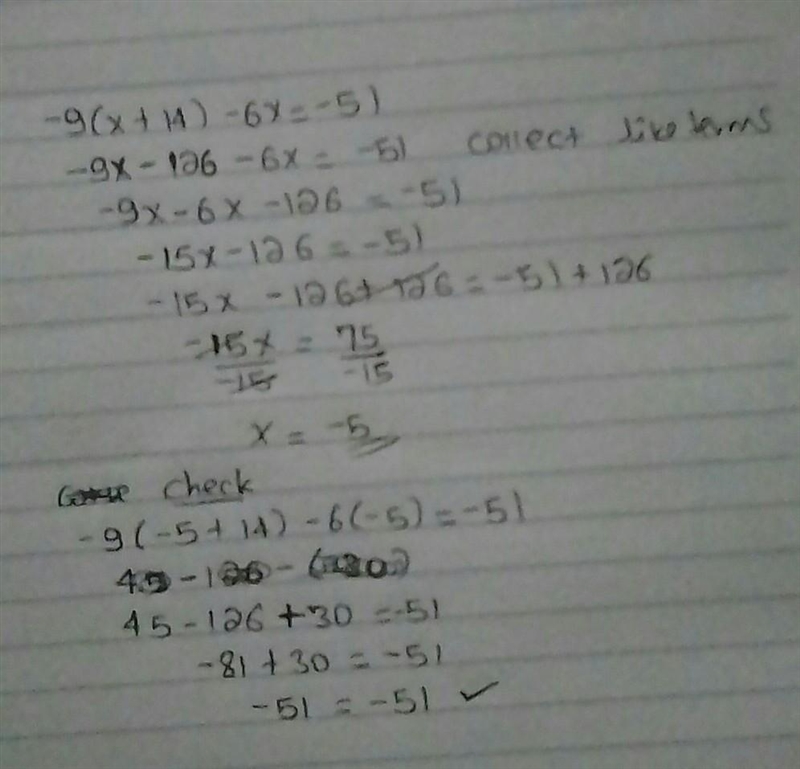 -9(x+14) -6x = -51
-9x - 126 - 6x = -51 collect like terms
-9x - 6x - 126 = -51
-15x - 126 = -51
-15x - 126 + 126 = -51 + 126
-15x = 75
-15 -15
x = -5
check
-9(-5+14) - 6(-5) = -51
45 - 126 -
45 - 126 + 30 = -51
-81 + 30 = -51
-51 = -51 ✓